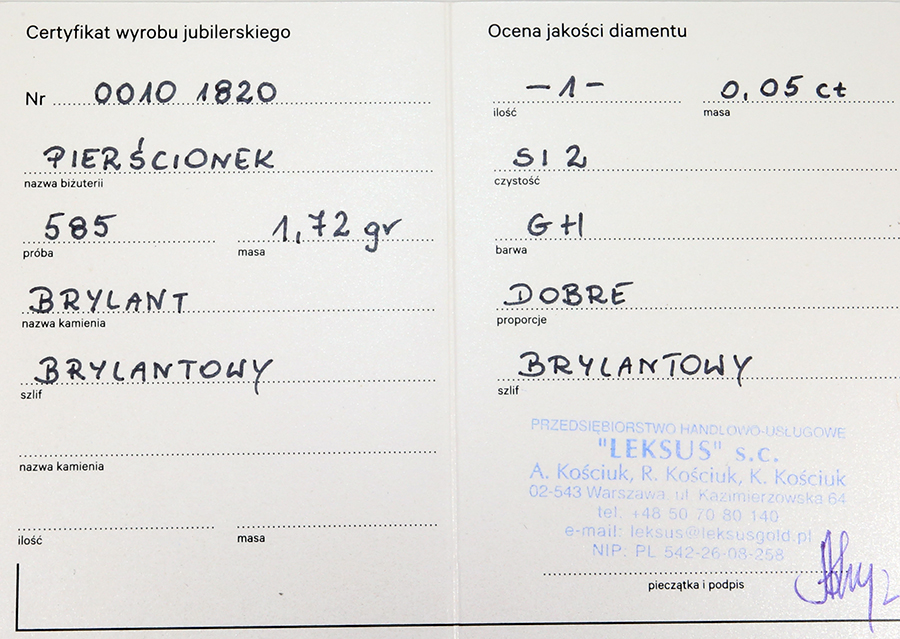 Certyfikat wyrobu jubilerskiego
Nr 0010 1820
PIERŚCIONEK
nazwa biżuterii
585 1,72 gr
próba masa
BRYLANT
nazwa kamienia
BRYLANTOWY
szlif
nazwa kamienia
ilość masa
Ocena jakości diamentu
-1- 0,05 ct
ilość masa
SI 2
czystość
GH
barwa
DOBRE
proporcje
BRYLANTOWY
szlif
PRZEDSIĘBIORSTWO HANDLOWO-USŁUGOWE
"LEKSUS" s.c.
A. Kościuk, R. Kościuk, K. Kościuk
02-543 Warszawa, ul. Kazimierzowska 64
tel. +48 50 70 80 140
e-mail: leksus@leksusgold.pl
NIP: PL 542-26-08-258
pieczątka i podpis